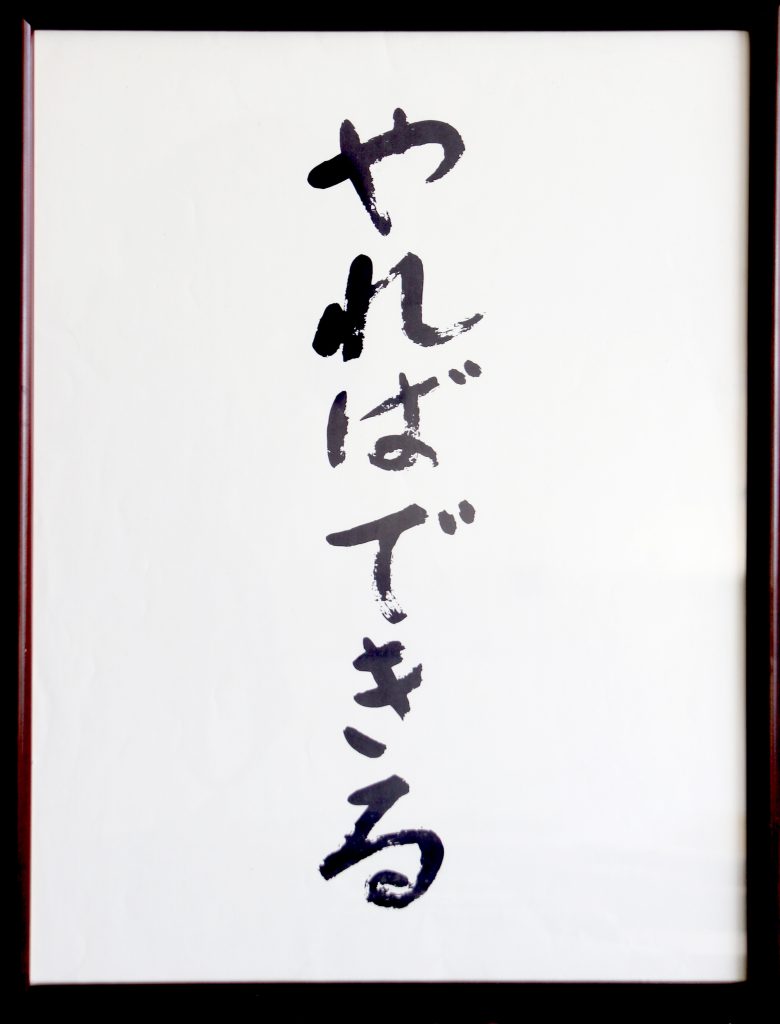 やればできる